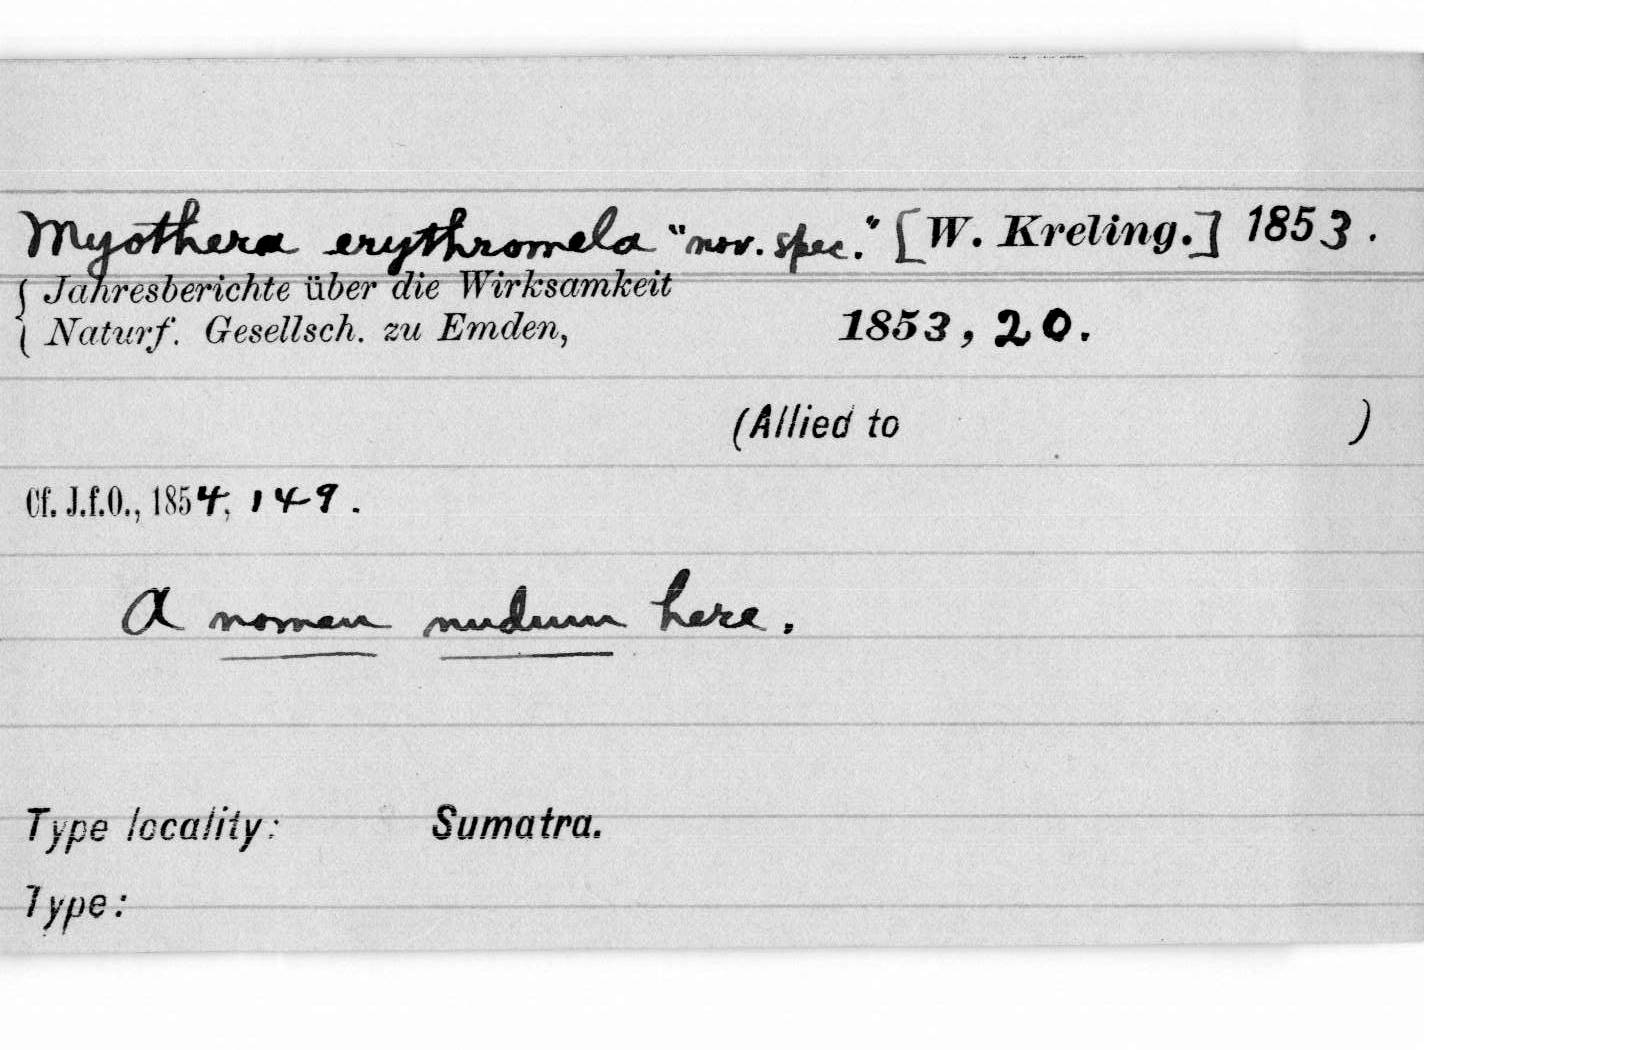 Myothera erythromela "nov. spec." [W. Kreling.] 1853.
Jahresberichte über die Wirksamkeit
Naturf. Gesellsch. zu Emden, 1853, 20.
(Allied to )
Cf. J.f.O., 1854, 149.
A nomen nudum here.
Type locality: Sumatra.
Type: